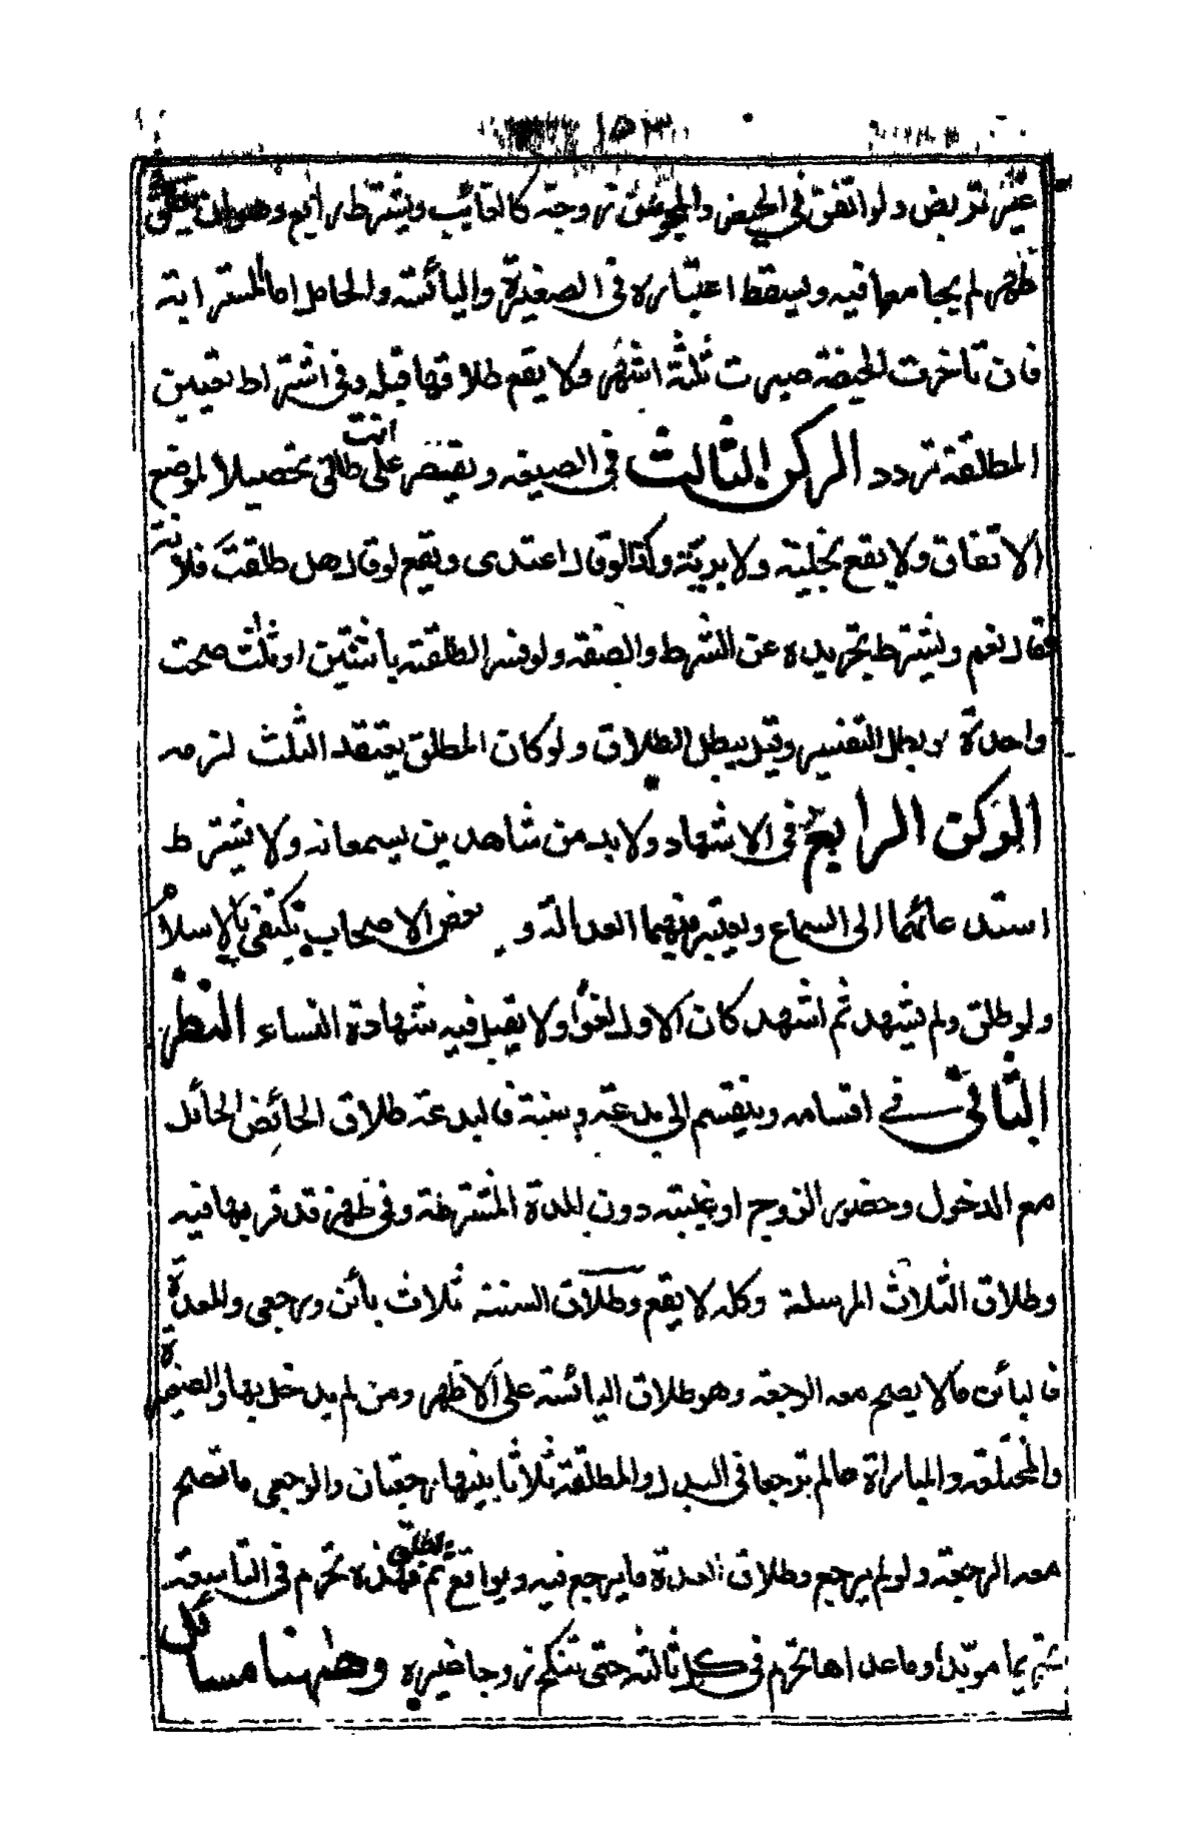 ١٥٣
غير تربص ولو اتفق في الحيض والمحبوس عن زوجته كالغائب ويشترط رابع وهو ان يطلق
طهر لم يجامعها فيه ويسقط اعتباره في الصغيرة واليائسة والحامل اما المسترابة
فان تأخرت الحيضة صبرت ثلثة اشهر ولا يقع طلاقها قبله وفي اشتراط تعيين
المطلقة تردد الركن الثالث في الصيغه ويقتصر على انت طالق تحصيلا لموضع
الاتفاق ولا يقع بخلية ولا برية وكذا لو قال اعتدى ويقع لو قال هل طلقت فلانة
فقال نعم ويشترط تجريده عن الشرط والصفه ولو فسر الطلقة بأثنتين او ثلث صحت
واحدة وبطل التفسير وقيل يبطل الطلاق ولو كان المطلق يعتقد الثلث لزمه
الركن الرابع في الاشهاد ولابد من شاهدين يسمعانه ولا يشترط
استدعائهما الى السماع ويعتبر فيهما العدالة و بعض الاصحاب يكتفي بالإسلام
ولو طلق ولم يشهد ثم اشهد كان الاول لغواً ولا يقبل فيه شهادة النساء النظر
الثاني في اقسامه وينقسم الى بدعة وسنة فالبدعة طلاق الحائض الحائل
مع الدخول وحضور الزوج او غيبته دون المدة المشترطة وفي طهر قد قربها فيه
وطلاق الثلاث المرسلة وكله لا يقع وطلاق السنة ثلاث بأئن ورجعي والعدة
فالبائن مالا يصح معه الرجعة وهو طلاق اليائسة على الاظهر ومن لم يدخل بها والصغيرة
والمختلعة والمباراة مالم ترجعا في البدل والمطلقة ثلاثا بينها رجعتان والرجعي ما تصح
معه الرجعة ولو لم يرجع وطلاق العدة ما يرجع فيه ويواقع ثم يطلق فهذه تحرم في التاسعة
تحريما مؤبداً وما عداها تحرم في كل ثالثة حتى تنكح زوجا غيره وههنا مسائل